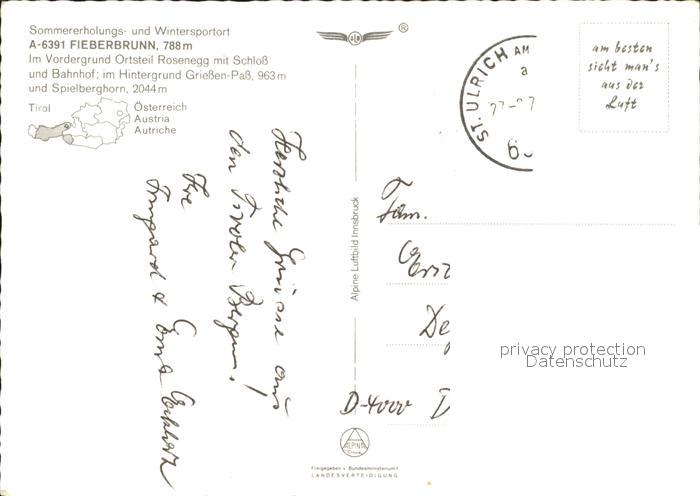 Sommererholungs- und Wintersportort
A-6391 FIEBERBRUNN, 788 m
Im Vordergrund Ortsteil Rosenegg mit Schloß
und Bahnhof; im Hintergrund Grießen-Paß, 963 m
und Spielberghorn, 2044 m
Tirol
Österreich
Austria
Autriche
Herzliche Grüsse aus
den Tiroler Bergen!
Ihre
Irmgard & Ernst
Alpine Luftbild Innsbruck
ALPINE
Freigegeben v. Bundesministerium f.
LANDESVERTEIDIGUNG
®
ST. ULRICH AM
am besten
sieht man's
aus der
Luft
Fam.
D-4000 D
privacy protection
Datenschutz